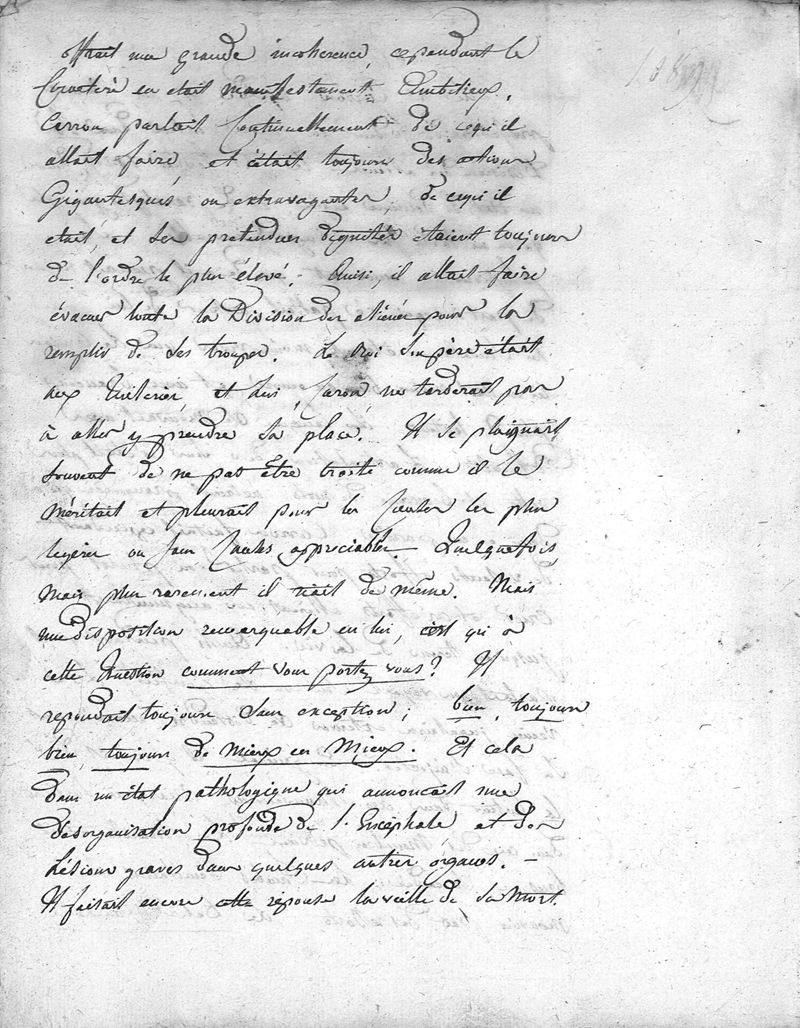 offrait une grande incoherence, cependant le
Caractère en était manifestament Ambitieux.
Carron parlait Continuellement de cequ'il
allait faire, et c'était toujours des actions
Gigantesques ou extravagantes, de cequ'il
etait, et ses pretendues dignités étaient toujours
de l'ordre le plus élevé. Ainsi, il allait faire
évacuer toute la Division des aliénés pour la
remplir de ses troupes. Le Roi Son père était
aux Tuileries, et lui, Caron, ne tarderait pas
à aller y prendre Sa place. Il se plaignait
souvent de ne pas être traité comme il le
Méritait et pleurait pour les Causes les plus
legères ou sans Causes appreciables. Quelquefois,
mais plus rarement il riait de même. Mais
une disposition remarquable en lui, c'est qu'à
cette Question comment vous portez vous? Il
repondait toujours Sans exception; bien, toujours
bien, toujours de Mieux en Mieux. Et cela
dans un état pathologique qui annoncait une
désorganisation profonde de l'Encéphale et des
Lésions graves dans quelques autres organes. —
Il faisait encore cette reponse la veille de Sa Mort.